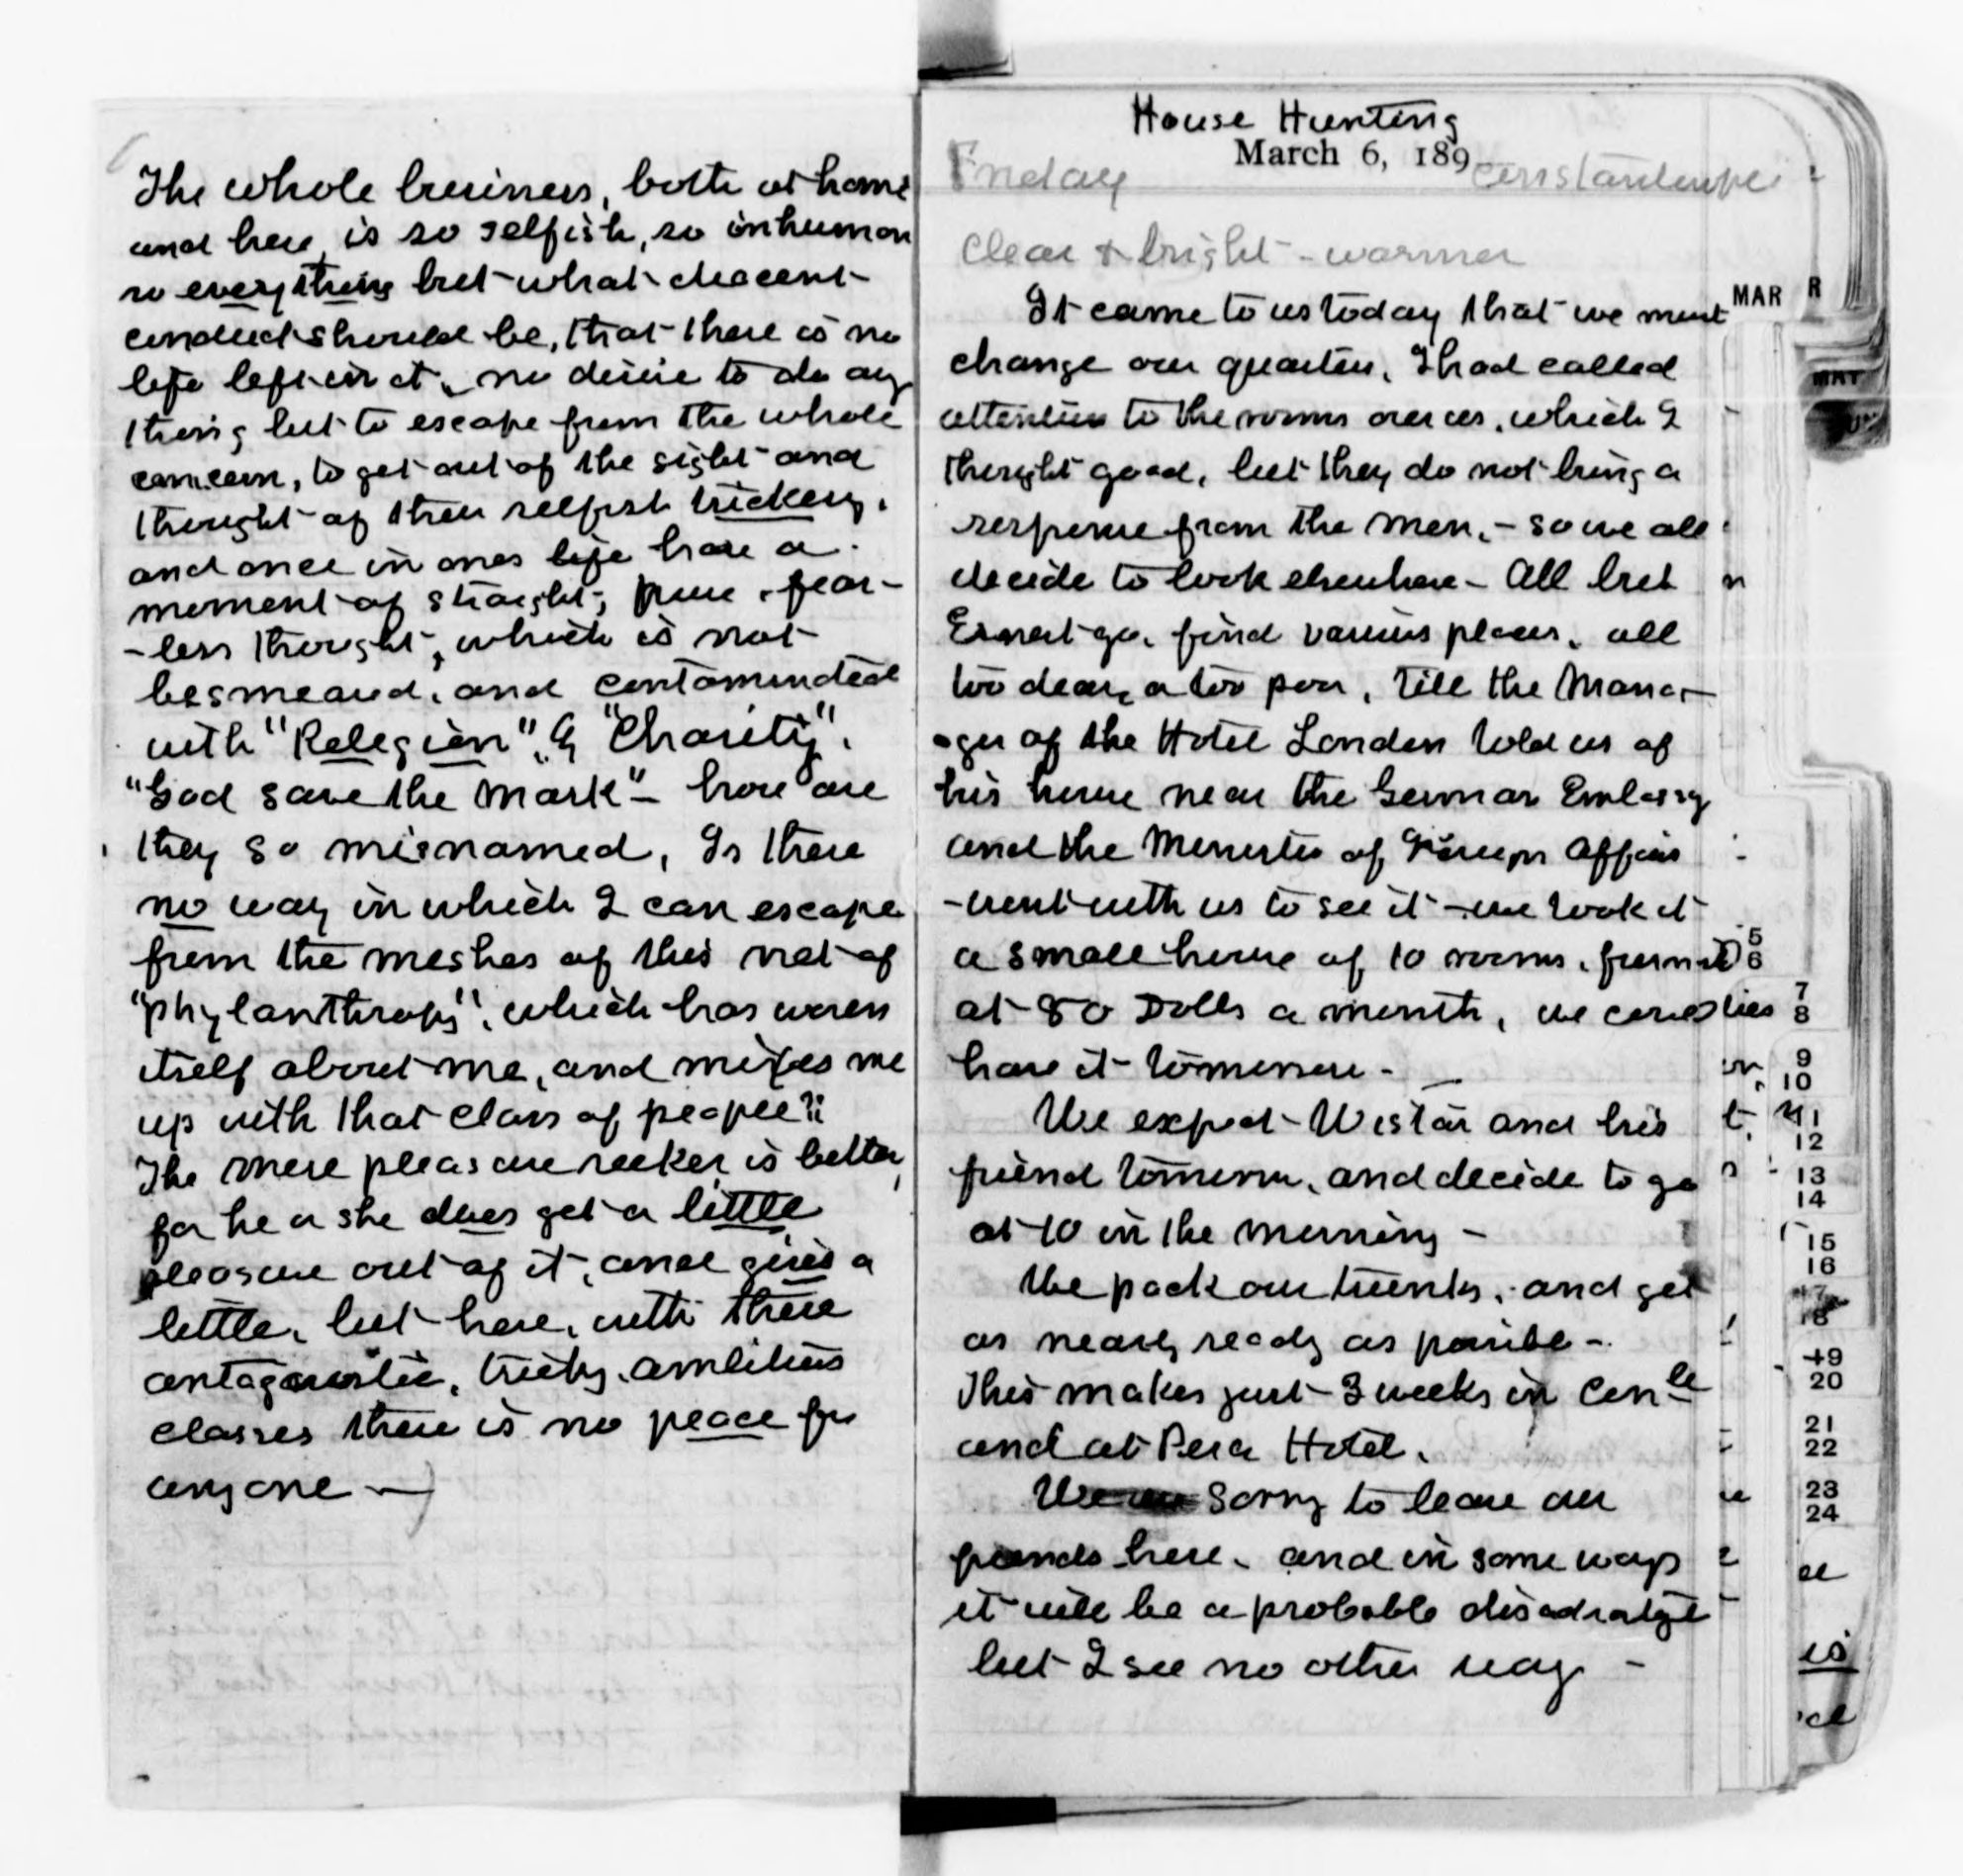 The whole business, both at home
and here, is so selfish, so inhuman
so everything but what decent
conduct should be, that there is no
life left in it, no desire to do any
thing but to escape from the whole
concern, to get out of the sight and
thought of their selfish trickery,
and once in ones life have a
moment of straight, pure, fear-
-less thought, which is not
besmeared, and contaminated
with "Relegion", & "Charity",
"God save the Mark" - how are
they so misnamed, Is there
no way in which I can escape
from the meshes of this net of
"phylanthropy", which has woven
itself about me, and mixes me
up with that class of people?
The mere pleasure seeker is better,
for he or she does get a little
pleasure out of it, and gives a
little, but here, with these
antagonistic, tricky, ambitious
classes there is no peace for
anyone -
House Hunting
March 6, 189
Friday Constantinople
Clear & bright - warmer
It came to us today that we must
change our quarters, I had called
attention to the rooms over us, which I
thought good, but they do not bring a
response from the men, - so we all
decide to look elsewhere - All but
Ernest go, find various places, all
too dear, or too poor, till the Mana-
-ger of the Hotel London told us of
his house near the German Embassy
and the Minister of Foreign Affairs
- went with us to see it - we took it
a small house of 10 rooms, furnd
at 80 Dolls a month, we could
have it tomorrow -
We expect Wistar and his
friend tomorrow, and decide to go
at 10 in the morning -
We pack our trunks, and get
as nearly ready as posible -
This makes just 3 weeks in Conle
and at Pera Hotel.
We sorry to leave our
friends here, and in some ways
it will be a probable disadvatge
but I see no other way -
MAR
5
6
7
8
9
10
11
12
13
14
15
16
17
18
19
20
21
22
23
24